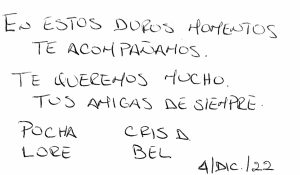 EN ESTOS DUROS MOMENTOS
TE ACOMPAÑAMOS.
TE QUEREMOS MUCHO.
TUS AMIGAS DE SIEMPRE.
POCHA CRIS D
LORE BEL
4/DIC./22